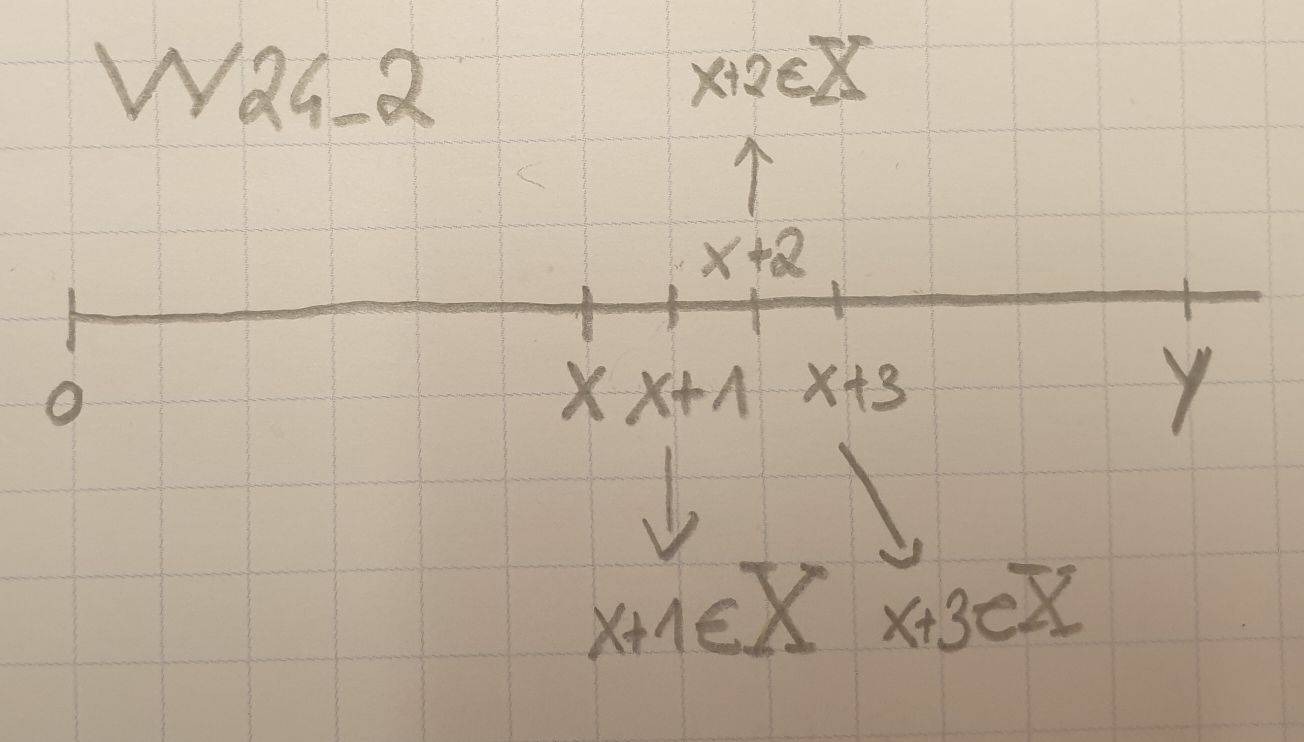 W24_2
x+2∈X
x+2
0 x x+1 x+3 y
x+1∈X x+3∈X